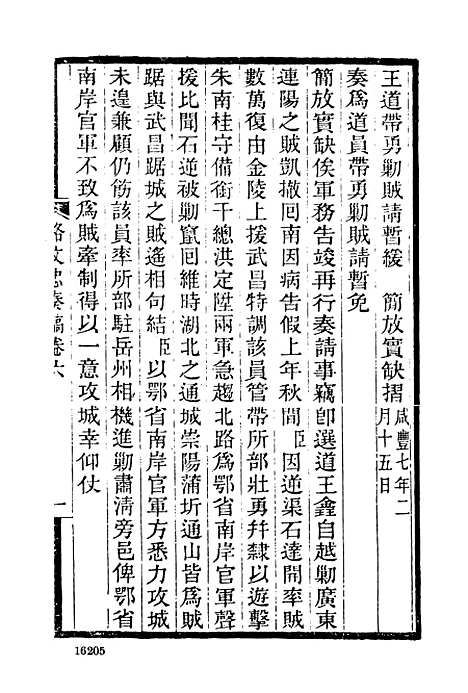 王道帶勇勦賊請暫緩　簡放實缺摺咸豐七年二月十五日
奏爲道員帶勇勦賊請暫免
簡放實缺俟軍務告竣再行奏請事竊卽選道王鑫自越勦廣東
連陽之賊凱撤囘南因病告假上年秋間臣因逆渠石達開率賊
數萬復由金陵上援武昌特調該員管帶所部壯勇幷隸以遊擊
朱南桂守備銜千總洪定陞兩軍急趨北路爲鄂省南岸官軍聲
援比聞石逆被勦竄囘維時湖北之通城崇陽蒲圻通山皆爲賊
踞與武昌踞城之賊遙相句結臣以鄂省南岸官軍方悉力攻城
未遑兼顧仍飭該員率所部駐岳州相機進勦肅淸旁邑俾鄂省
南岸官軍不致爲賊牽制得以一意攻城幸仰仗
駱文忠奏稿卷六
一
16205